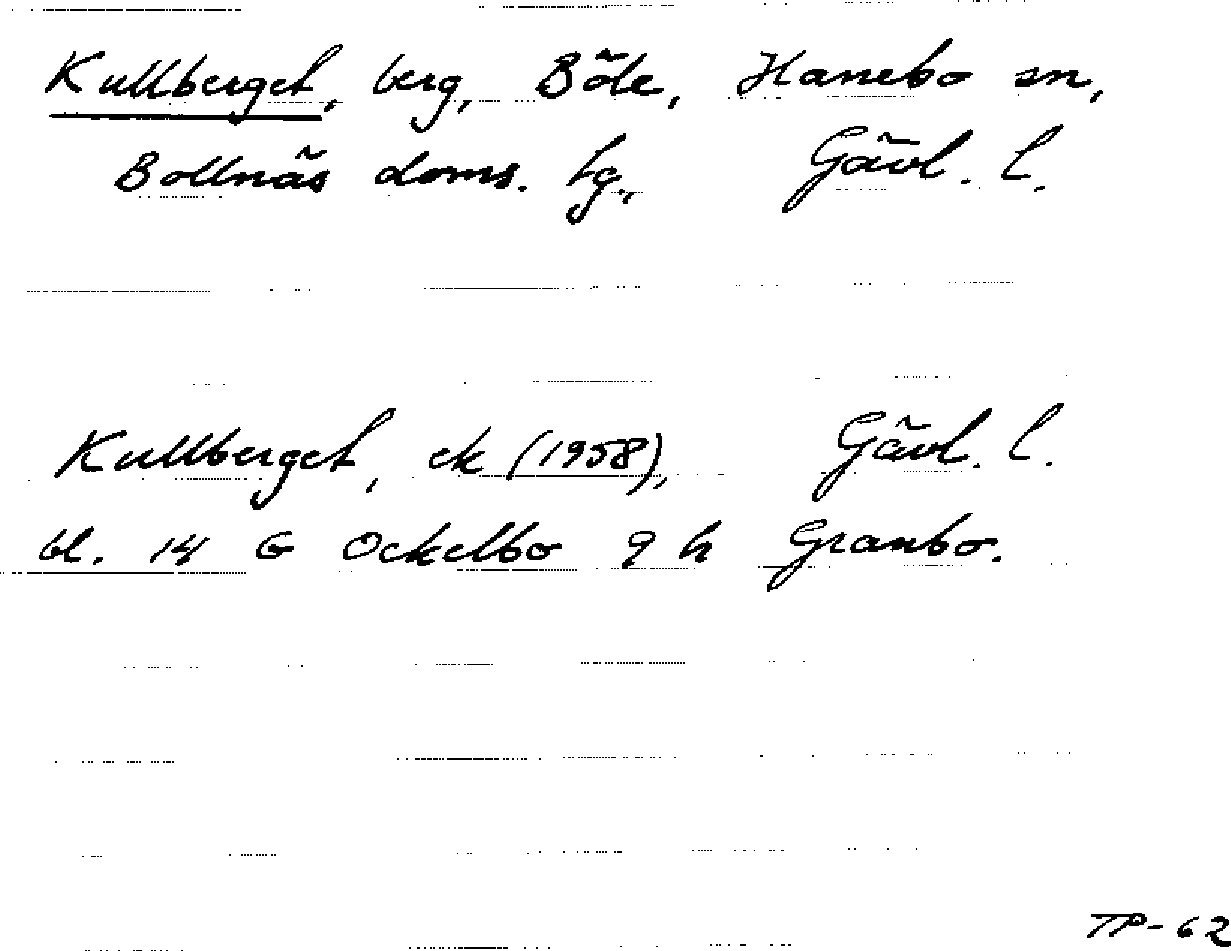 Kullberget, berg, Böle, Hanebo sn,
Bollnäs doms. tg., Gävl. l.
Kullberget, ek (1958), Gävl. l.
bl. 14 G Ockelbo 9 h Granbo.
TP-62